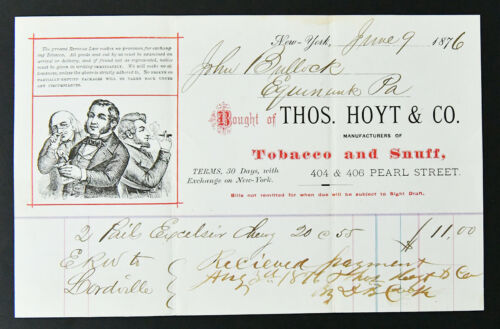 The present Revenue Law makes no provision for exchanging Tobacco. All goods sent out by us must be examined on arrival or delivery, and if found not as represented, notice must be given in writing immediately. We will make no allowance, unless the above is strictly adhered to. No broken or partially-emptied packages will be taken back under any circumstances.
New-York, June 9 1876
John Bullock
Equinunk Pa
Bought of THOS. HOYT & CO.
MANUFACTURERS OF
Tobacco and Snuff,
TERMS, 30 Days, with
Exchange on New-York.
404 & 406 PEARL STREET.
Bills not remitted for when due will be subject to Sight Draft.
2 Pails Excelsior Chewg 20 @ 55 $11,00
ERW to
Lordville
Recieved payment
Aug 3d 1876 Thos Hoyt & Co